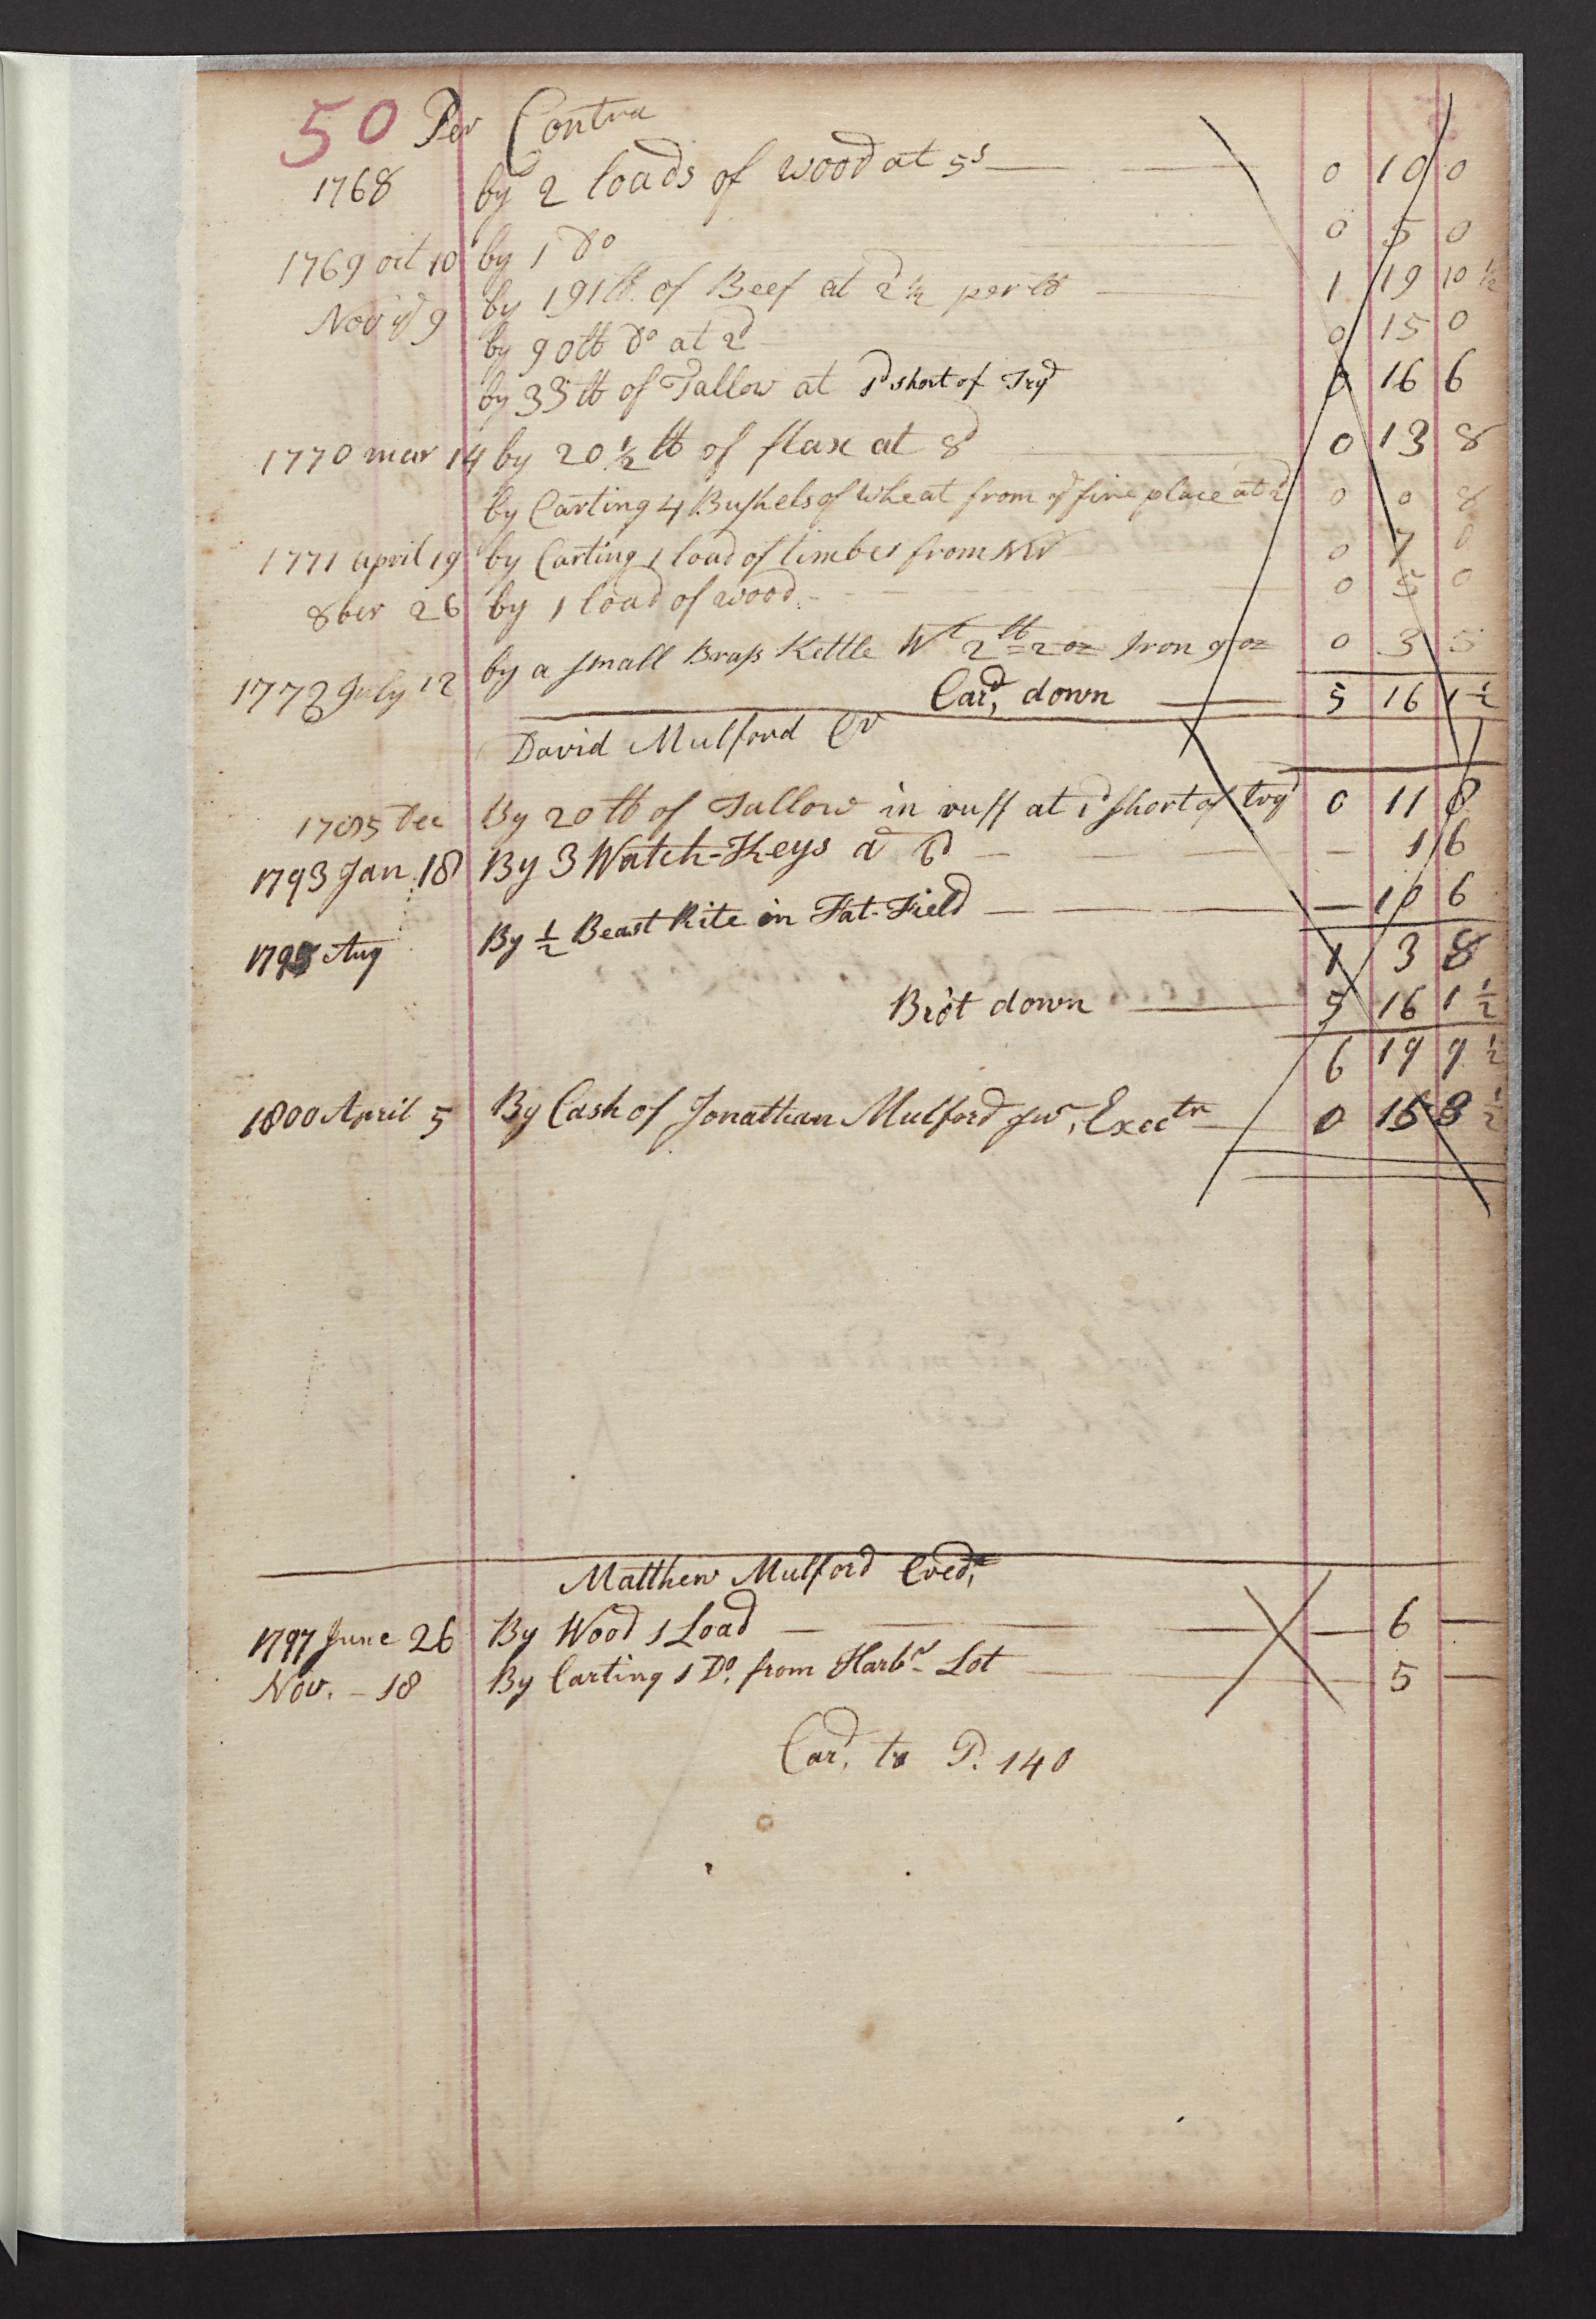 50 Per Contra
1768 by 2 loads of wood at 5s 0 10 0
1769 oct 10 by 1 do 0 5 0
Novr ye 9 by 191 lb of Beef at 2d½ per lb 1 19 10 ½
by 90 lb do at 2d 0 15 0
by 33 lb of Tallow at 1d short of Tryd 0 16 6
1770 mar 14 by 20 ½ lb of flax at 8d 0 13 8
by Carting 4 Bushels of Wheat from ye fire place at 2d 0 0 8
1771 april 19 by Carting 1 load of timber from NW 0 7 0
8ber 26 by 1 load of wood 0 5 0
July 12 by a small Brass Kettle Wt 2 lb = 2 oz Iron 9 oz 0 3 5
Card, down 5 16 1 ½
David Mulford Cr
1785 Dec By 20 lb of Tallow in ruff at 1d short of tryd 0 11 8
1793 Jan. 18 By 3 Watch-Keys a 6d — 1 6
Aug By ½ Beast Rite in Fat-Field — 10 6
1 3 8
Bro't down 5 16 1 ½
6 19 9 ½
1800 April 5 By Cash of Jonathan Mulford Jur, Exectr 0 15 8 ½
Matthew Mulford Credr,
1797 June 26 By Wood 1 Load — 6 —
Nov. - 18 By Carting 1 Do. from Harbr Lot — 5 —
Card, to P. 140